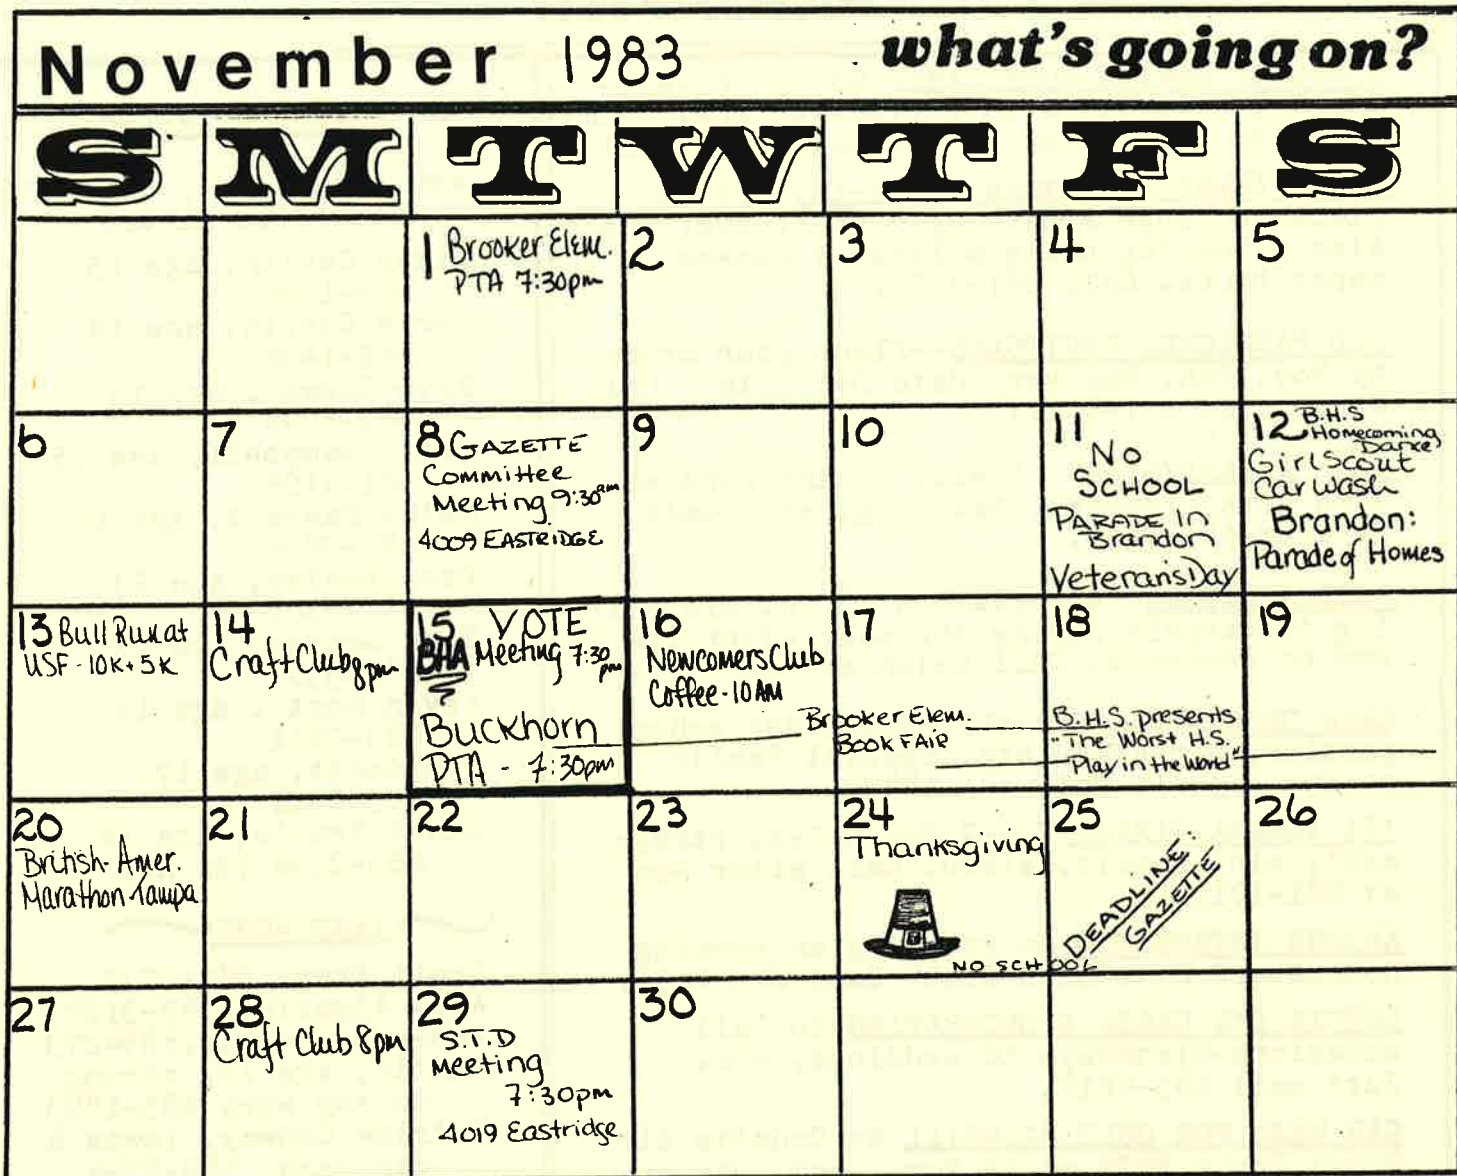 November 1983 what's going on?
S M T W T F S
1 Brooker Elem.
PTA 7:30pm
2
3
4
5
6
7
8 GAZETTE
Committee
Meeting 9:30am
4009 EASTRIDGE
9
10
11
No
SCHOOL
PARADE In
Brandon
Veteran's Day
12 B.H.S
Homecoming
Dance
Girl Scout
Car Wash
Brandon:
Parade of Homes
13 Bull Run at
USF - 10K + 5K
14
Craft Club 8pm
15 VOTE
BHA Meeting 7:30
pm
Buckhorn
PTA - 7:30pm
16
Newcomers Club
Coffee - 10 AM
17
Brooker Elem.
BOOK FAIR
18
B.H.S. presents
"The Worst H.S.
Play in the World"
19
20
British-Amer.
Marathon-Tampa
21
22
23
24
Thanksgiving
NO SCHOOL
25
DEADLINE:
GAZETTE
26
27
28
Craft Club 8pm
29
S.T.D
Meeting
7:30pm
4019 Eastridge
30